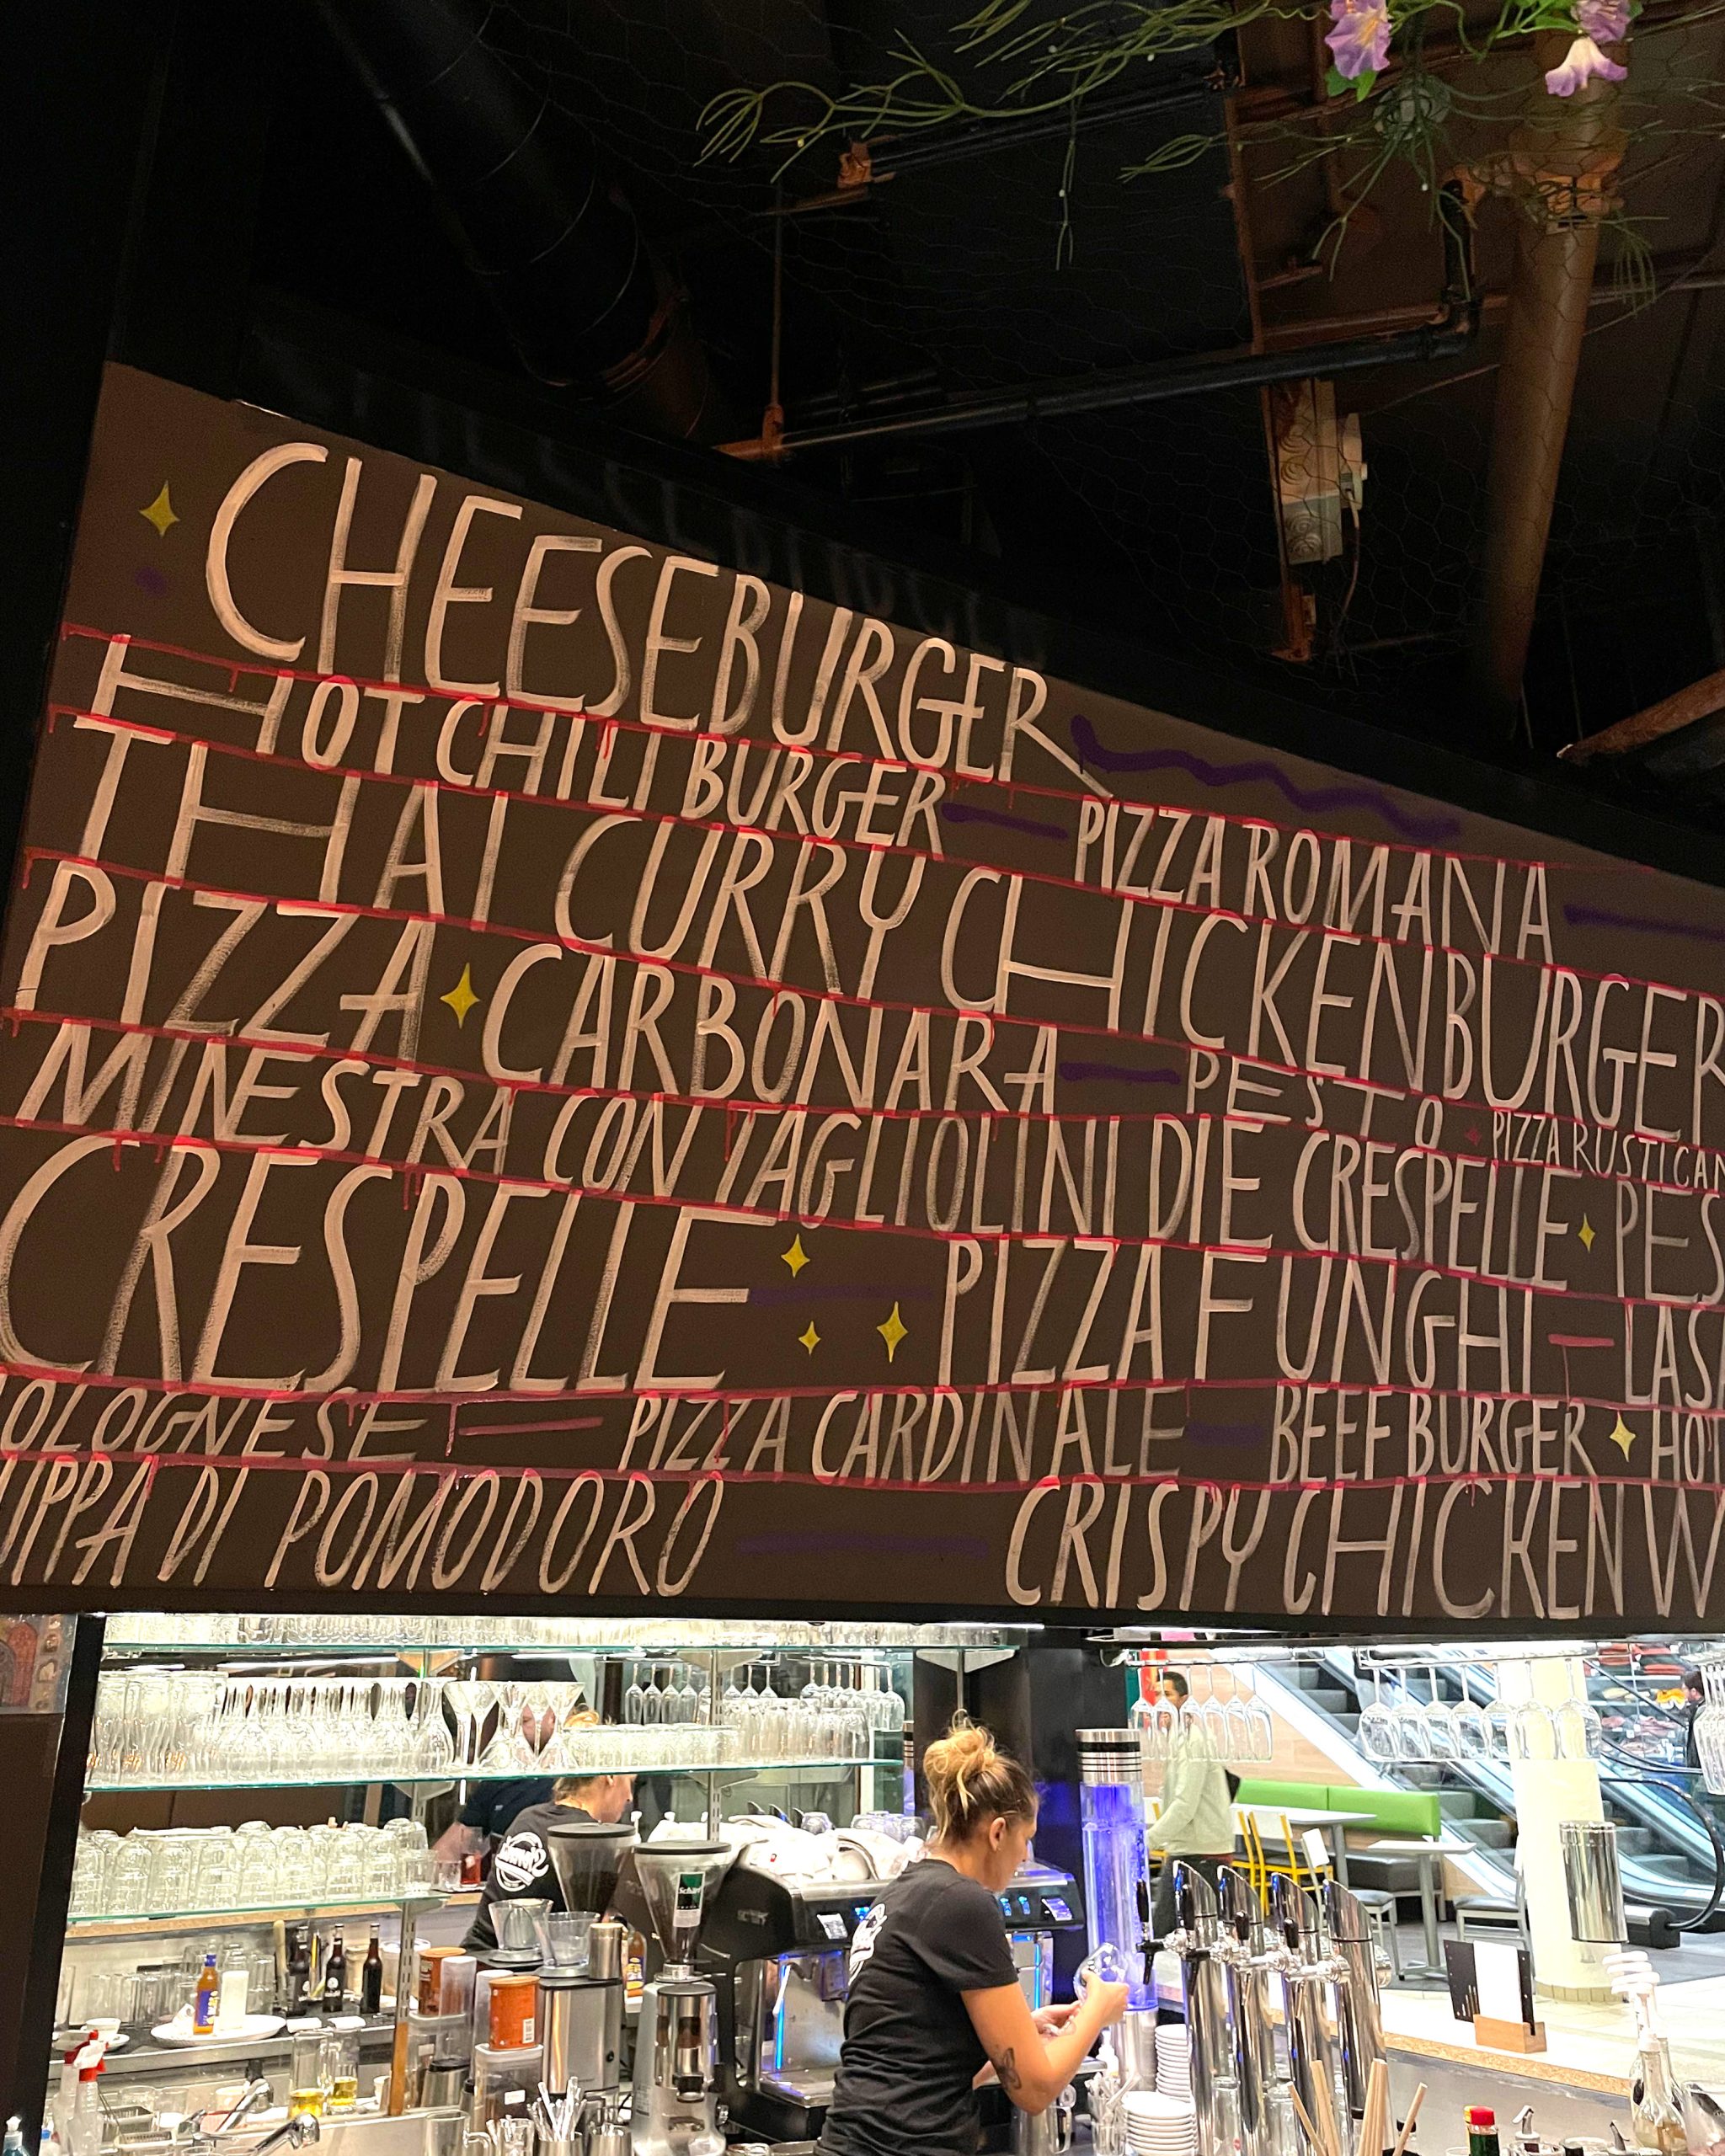 CHEESEBURGER
HOT CHILI BURGER — PIZZA ROMANA —
THAI CURRY CHICKENBURGER
PIZZA CARBONARA — PESTO PIZZA RUSTICAN
MINESTRA CON TAGLIOLINI DIE CRESPELLE PES
CRESPELLE PIZZA FUNGHI — LAS
OLOGNESE — PIZZA CARDINALE — BEEF BURGER HOT
UPPA DI POMODORO — CRISPY CHICKEN W
Schärf